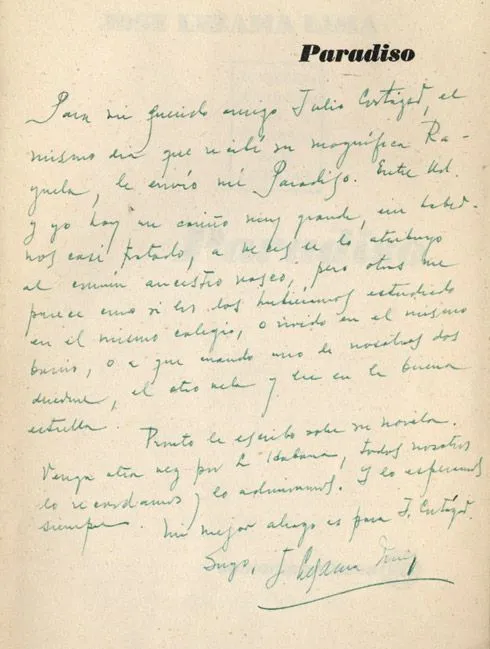 Paradiso
Para mi querido amigo Julio Cortázar, el
mismo día que recibí su magnífica Ra-
yuela, le envío mi Paradiso. Entre Ud.
y yo hay un cariño muy grande, sin haber-
nos casi tratado, a veces se lo atribuyo
al común ancestro vasco, pero otras me
parece como si los dos hubiéramos estudiado
en el mismo colegio, o vivido en el mismo
barrio, o a que cuando uno de nosotros dos
duerme, el otro vela y lee en la buena
estrella. Pronto le escribo sobre su novela.
Venga otra vez por La Habana, todos nosotros
lo recordamos y lo admiramos. Y lo esperamos
siempre. Mi mejor abrazo es para J. Cortázar.
Suyo, J. Lezama Lima